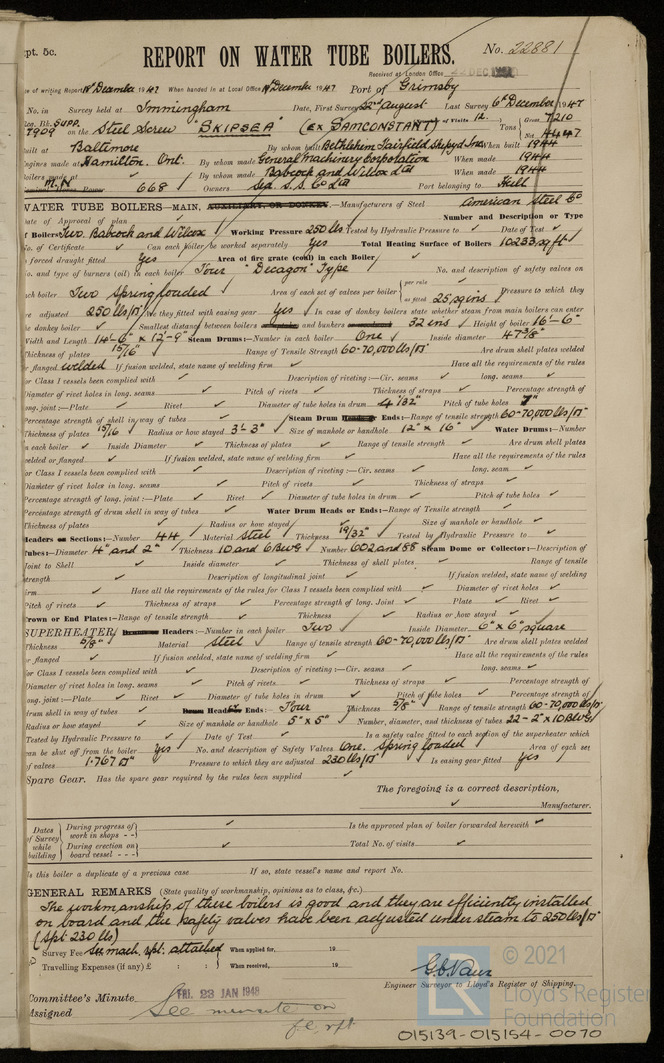 pt. 5c.
REPORT ON WATER TUBE BOILERS.
No. 22881
Received at London Office 22 DEC
of writing Report 18th December 1947 When handed in at Local Office 19th December 1947 Port of Grimsby
No. in Survey held at Immingham Date, First Survey 22nd August Last Survey 6th December 1947
7909 on the Steel Screw "SKIPSEA" (EX SAMCONSTANT) of Visits 12. Tons Gross 7210 Net 4447
Built at Baltimore By whom built Bethlehem Fairfield Shipyd Inc When built 1944
Engines made at Hamilton. Ont. By whom made General Machinery Corporation When made 1944
Boilers made at ✓ By whom made Babcock and Wilcox Ltd When made 1944
M.N 668 Owners Sea. S.S. Co Ltd Port belonging to Hull
WATER TUBE BOILERS—MAIN, AUXILIARY OR DONKEY.—Manufacturers of Steel American Steel Co
Date of Approval of plan ✓ Number and Description or Type
of Boilers Two. Babcock and Wilcox Working Pressure 250 lbs Tested by Hydraulic Pressure to ✓ Date of Test ✓
No. of Certificate ✓ Can each boiler be worked separately Yes Total Heating Surface of Boilers 10233 sq ft
forced draught fitted Yes Area of fire grate (coal) in each Boiler ✓
No. and type of burners (oil) in each boiler Four "Decagon" Type No. and description of safety valves on
each boiler Two Spring loaded Area of each set of valves per boiler per rule ✓ as fitted 25 sq ins Pressure to which they
are adjusted 250 lbs/□" Are they fitted with easing gear Yes In case of donkey boilers state whether steam from main boilers can enter
the donkey boiler ✓ Smallest distance between boilers and bunkers 32 ins Height of boiler 16'-6"
Width and Length 14'-6" x 12'-9" Steam Drums:—Number in each boiler One Inside diameter 47⅜"
Thickness of plates 15/16" Range of Tensile Strength 60-70,000 lbs/□" Are drum shell plates welded
or flanged welded If fusion welded, state name of welding firm ✓ Have all the requirements of the rules
for Class I vessels been complied with ✓ Description of riveting:—Cir. seams ✓ long. seams ✓
Diameter of rivet holes in long. seams ✓ Pitch of rivets ✓ Thickness of straps ✓ Percentage strength of
long. joint:—Plate ✓ Rivet ✓ Diameter of tube holes in drum 4 1/32" Pitch of tube holes 7"
Percentage strength of shell in way of tubes ✓ Steam Drum Heads or Ends:—Range of tensile strength 60-70,000 lbs/□"
Thickness of plates 15/16 Radius or how stayed 3'-3" Size of manhole or handhole 12" x 16" Water Drums:—Number
in each boiler ✓ Inside Diameter ✓ Thickness of plates ✓ Range of tensile strength ✓ Are drum shell plates
welded or flanged ✓ If fusion welded, state name of welding firm ✓ Have all the requirements of the rules
for Class I vessels been complied with ✓ Description of riveting:—Cir. seams ✓ long. seam ✓
Diameter of rivet holes in long. seams ✓ Pitch of rivets ✓ Thickness of straps ✓
Percentage strength of long. joint:—Plate ✓ Rivet ✓ Diameter of tube holes in drum ✓ Pitch of tube holes ✓
Percentage strength of drum shell in way of tubes ✓ Water Drum Heads or Ends:—Range of Tensile strength ✓
Thickness of plates ✓ Radius or how stayed ✓ Size of manhole or handhole ✓
Headers or Sections:—Number 44 Material Steel Thickness 19/32" Tested by Hydraulic Pressure to ✓
Tubes:—Diameter 4" and 2" Thickness 10 and 6 BWG Number 602 and 88 Steam Dome or Collector:—Description of
Joint to Shell ✓ Inside diameter ✓ Thickness of shell plates ✓ Range of tensile
strength ✓ Description of longitudinal joint ✓ If fusion welded, state name of welding
firm ✓ Have all the requirements of the rules for Class I vessels been complied with ✓ Diameter of rivet holes ✓
Pitch of rivets ✓ Thickness of straps ✓ Percentage strength of long. Joint ✓ Plate ✓ Rivet ✓
Crown or End Plates:—Range of tensile strength ✓ Thickness ✓ Radius or how stayed ✓
SUPERHEATER. Drums or Headers:—Number in each boiler Two Inside Diameter 6" x 6" square
Thickness 5/8" Material Steel Range of tensile strength 60-70,000 lbs/□" Are drum shell plates welded
or flanged ✓ If fusion welded, state name of welding firm ✓ Have all the requirements of the rules
for Class I vessels been complied with ✓ Description of riveting:—Cir. seams ✓ long. seams ✓
Diameter of rivet holes in long. seams ✓ Pitch of rivets ✓ Thickness of straps ✓ Percentage strength of
long. joint:—Plate ✓ Rivet ✓ Diameter of tube holes in drum ✓ Pitch of tube holes ✓ Percentage strength of
drum shell in way of tubes ✓ Drum Heads or Ends:—Four Thickness 5/8" Range of tensile strength 60-70,000 lbs/□"
Radius or how stayed ✓ Size of manhole or handhole 5" x 5" Number, diameter, and thickness of tubes 22-2" x 10 BWG
Tested by Hydraulic Pressure to ✓ Date of Test ✓ Is a safety valve fitted to each section of the superheater which
can be shut off from the boiler Yes No. and description of Safety Valves One. Spring loaded Area of each set
of valves 1.767 □" Pressure to which they are adjusted 230 lbs/□" Is easing gear fitted Yes
Spare Gear. Has the spare gear required by the rules been supplied ✓
The foregoing is a correct description,
✓ Manufacturer.
Dates of Survey while building
During progress of work in shops - - ✓ Is the approved plan of boiler forwarded herewith ✓
During erection on board vessel - - - ✓ Total No. of visits ✓
Is this boiler a duplicate of a previous case If so, state vessel's name and report No.
GENERAL REMARKS (State quality of workmanship, opinions as to class, &c.)
The workmanship of these boilers is good and they are efficiently installed
on board and the safety valves have been adjusted under steam to 250 lbs/□"
(Spt 230 lbs)
Survey Fee See mach. rpt. attached When applied for, 19
Travelling Expenses (if any) £ : : When received, 19
Engineer Surveyor to Lloyd's Register of Shipping.
Committee's Minute FRI. 23 JAN 1948
Assigned See minute on
fe rpt
© 2021
Lloyd's Register
Foundation
015139-015154-0070